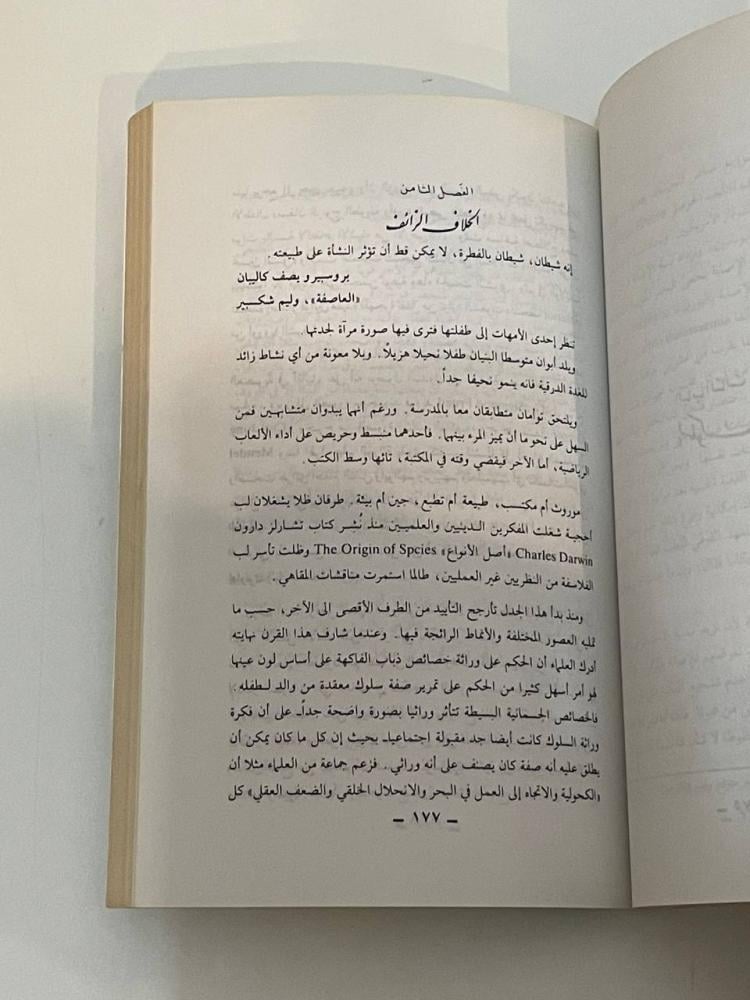 الفصل الثامن
الخلاف الزائف
إنه شيطان، شيطان بالفطرة، لا يمكن قط أن تؤثر النشأة على طبيعته.
بروسبيرو يصف كاليبان
«العاصفة»، وليم شكسبير
تنظر إحدى الأمهات إلى طفلتها فترى فيها صورة مرآة لجدتها.
ويلد أبوان متوسطا البنيان طفلا نحيلا هزيلاً. وبلا معونة من أي نشاط زائد
للغدة الدرقية فانه ينمو نحيفا جداً.
ويلتحق توأمان متطابقان معا بالمدرسة. ورغم أنهما يبدوان متشابهين فمن
السهل على نحو ما أن يميز المرء بينهما. فأحدهما منبسط وحريص على أداء الألعاب
الرياضية، أما الآخر فيقضي وقته في المكتبة، تائها وسط الكتب.
موروث أم مكتسب، طبيعة أم تطبع، جين أم بيئة. طرفان ظلا يشغلان لب
أحجية شغلت المفكرين الدينيين والعلميين منذ نُشِر كتاب تشارلز دارون
Charles Darwin «أصل الأنواع» The Origin of Spcies وظلت تأسر لب
الفلاسفة من النظريين غير العمليين، طالما استمرت مناقشات المقاهي.
ومنذ بدأ هذا الجدل تأرجح التأييد من الطرف الأقصى الى الآخر، حسب ما
تمليه العصور المختلفة والأنماط الرائجة فيها. وعندما شارف هذا القرن نهايته
أدرك العلماء أن الحكم على وراثة خصائص ذباب الفاكهة على أساس لون عينها
لهو أمر أسهل كثيرا من الحكم على تمرير صفة سلوك معقدة من والد لطفله:
فالخصائص الجسمانية البسيطة تتأثر وراثيا بصورة واضحة جداً. على أن فكرة
وراثة السلوك كانت أيضا جد مقبولة اجتماعياـ بحيث إن كل ما كان يمكن أن
يطلق عليه أنه صفة كان يصنف على أنه وراثي. فزعم جماعة من العلماء مثلا أن
«الكحولية والاتجاه إلى العمل في البحر والانحلال الخلقي والضعف العقلي» كل
ـ ١٧٧ ـ